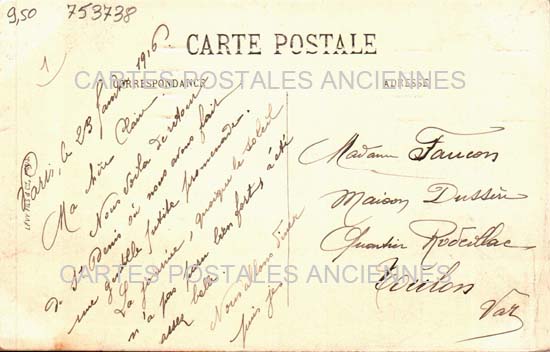 9,50 753738
1
CARTE POSTALE
CARTES POSTALES ANCIENNES
CORRESPONDANCE
ADRESSE
Paris, le 23 Janvier 1916
Ma chère Claire
Nous voilà de retour
de St Denis où nous avons fait
une gentille petite promenade.
La journée, quoique le soleil
n'a pas paru bien fort, a été
assez belle.
Nous allons dîner
puis je
Madame Faucon
Maison Dussère
Quartier Rodeillac
Toulon
Var
CARTES POSTALES ANCIENNES